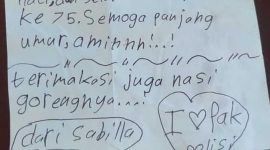 ke 75. Semoga panjang
umur, aminnh!..!
terimakasi juga nasi
goreagnya...!
dari Sabilla
I ♡ Pak